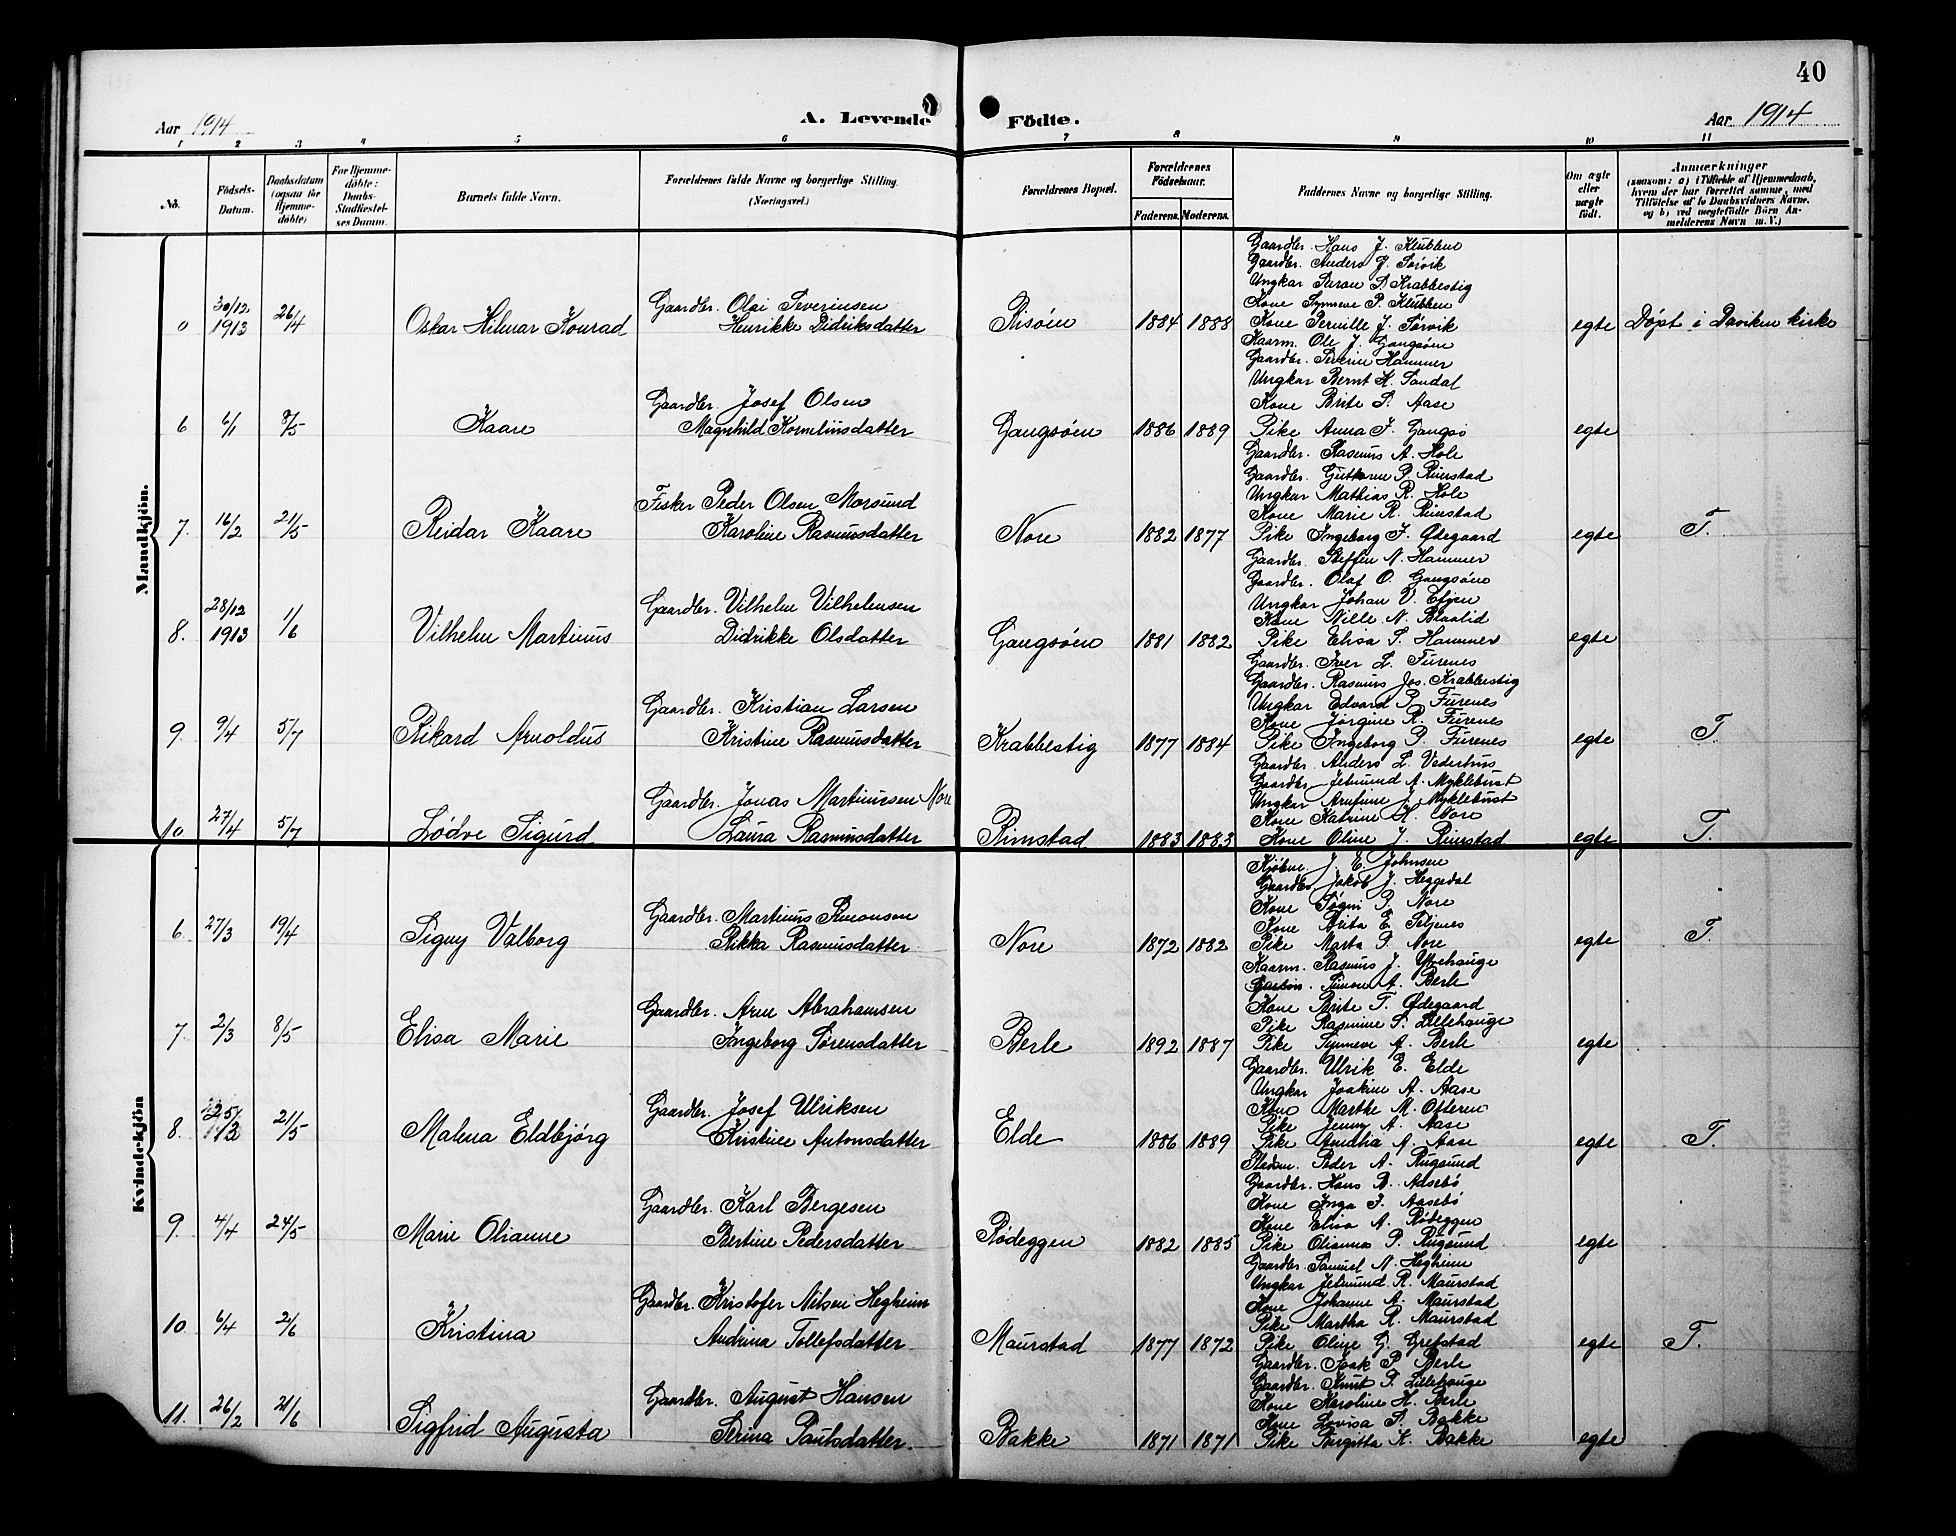 40
Aar 1914 A. Levende Födte. Aar 1914
1 2 3 4 5 6 7 8 9 10 11
No. Födsels-Datum. Daabsdatum (ogsaa for Hjemmedöbte) For Hjemmedöbte: Daabs-Stadfæstelses Datum. Barnets fulde Navn. Forældrenes fulde Navne og borgerlige Stilling. (Næringsvei.) Forældrenes Bopæl. Forældrenes Födselsaar. Faderens. Moderens. Faddernes Navne og borgerlige Stilling. Om ægte eller uægte födt. Anmærkninger
Mandkjön.
Gaardbr. Hans J. Klubben
Gaardbr. Anders J. Sørvik
Ungkar Steron D. Krabbestig
Kone Synneve P. Klubben
30/12 1913 26/14 Oskar Hilmar Konrad Gaardbr. Olai Severinsen Henrikke Didriksdatter Risøen 1884 1888 Kone Pernille J. Sørvik egte Døpt i Daviken kirke
Kaarm. Ole J. Gangsøen
Gaardbr. Severin Hammer
Ungkar Bernt K. Sandal
Kone Brite S. Aase
6 6/1 8/5 Kaare Gaardbr. Josef Olsen Magnhild Korneliusdatter Gangsøen 1886 1889 Pike Anna J. Gangsø egte
Gaardbr. Rasmus A. Hole
Gaardbr. Guttorm P. Rimstad
Ungkar Mathias R. Hole
Kone Marie R. Rimstad
7. 16/2 21/5 Reidar Kaare Fisker Peder Olsen Morsund Karoline Rasmusdatter Nore 1882 1877 Pike Ingeborg J. Ødegaard egte T.
Gaardbr. Steffen N. Hammer
Gaardbr. Olaf O. Gangsøen
Ungkar Johan V. Eltjen
Kone Nille N. Blaalid
8. 28/12 1913 1/6 Vilhelm Martinus Gaardbr. Vilhelm Vilhelmsen Didrikke Olsdatter Gangsøen 1881 1882 Pike Elisa S. Hammer egte
Gaardbr. Iver L. Furenes
Gaardbr. Rasmus Jos. Krabbestig
Ungkar Edvard P. Furenes
Kone Jørgine R. Furenes
9. 9/4 5/7 Rikard Arnoldus Gaardbr. Kristian Larsen Kristine Rasmusdatter Krabbestig 1877 1884 Pike Ingeborg P. Furenes egte T.
Gaardbr. Anders L. Vederhus
Gaardbr. Jetmund A. Myklebust
Ungkar Arnfinn J. Myklebust
Kone Katrine K. Nore
10 27/4 5/7 Lødve Sigurd Gaardbr. Jonas Martinusen Nore Laura Rasmusdatter Rimstad 1883 1883 Kone Oline J. Rimstad egte T.
Kvindekjön
Kjøbm. J. E. Johnsen
Gaardbr. Jakob J. Heggedal
Kone Søgni P. Nore
Kone Anita E. Siljenes
6. 27/3 19/4 Signy Valborg Gaardbr. Martinus Simonsen Rikka Rasmusdatter Nore 1872 1882 Pike Marta P. Nore egte T.
Kaarm. Rasmus J. Ytrehauge
Simon A. Berle
Kone Brite T. Ødegaard
Pike Rasmine S. Lillehauge
7. 2/3 8/5 Elisa Marie Gaardbr. Arne Abrahamsen Ingeborg Sørensdatter Berle 1892 1887 Pike Synneve A. Berle egte
Gaardbr. Ulrik E. Elde
Ungkar Joakim A. Aase
Kone Marthe M. Otteren
Pike Jenny A. Aase
8. 25/3 21/5 Malena Eldbjørg Gaardbr. Josef Ulriksen Kristine Antonsdatter Elde 1886 1889 Pike Amalia A. Aase egte T.
Peder A. Rugsund
Gaardbr. Hans B. Aasebø
Kone Inga J. Aasebø
Kone Elisa A. Rødeggen
9. 4/4 24/5 Marie Olianne Gaardbr. Karl Bergesen Bertine Pedersdatter Rødeggen 1882 1885 Pike Olianna P. Rugsund egte
Gaardbr. Samuel N. Hegheim
Ungkar Jetmund R. Maurstad
Kone Johanne A. Maurstad
Pike Martha R. Maurstad
10 6/4 2/6 Kristina Gaardbr. Kristofer Nilsen Hegheim Andrina Tollefsdatter Maurstad 1877 1872 Pike Oline G. Grefstad egte T.
Gaardbr. Isak P. Berle
Gaardbr. Knut P. Lillehauge
Kone Karoline H. Berle
Kone Lovisa S. Bakke
11. 26/2 21/6 Sigfrid Augusta Gaardbr. August Hansen Serina Paulsdatter Bakke 1871 1871 Pike Birgitta K. Bakke egte